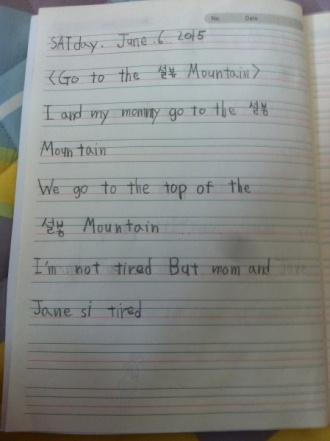 No. Date
SATday. June. 6 2015
<Go to the 설봉 Mountain>
I and my mommy go to the 설봉
Mountain
We go to the top of the
설봉 Mountain
I'm not tired But mom and
Jane si tired